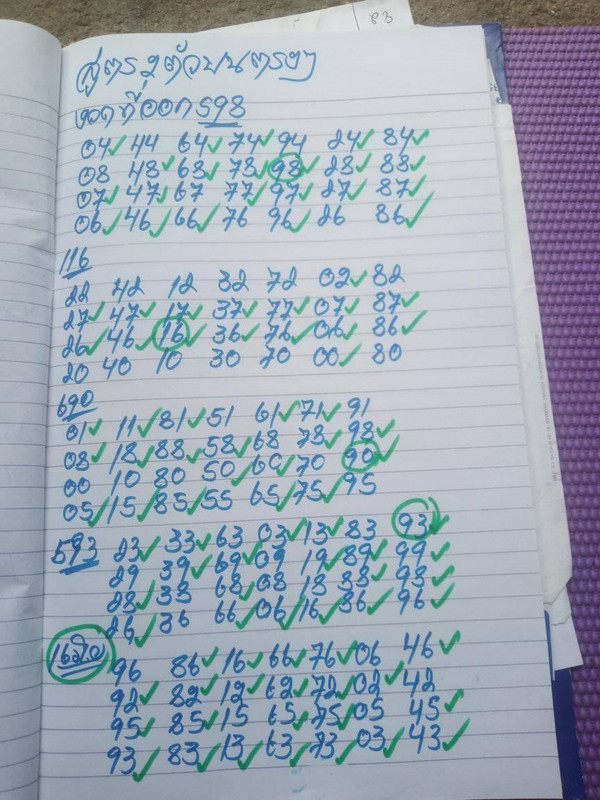 83
สูตร 2 ตัวบนตรงๆ
งวดที่ออก 598
04 44 64 74 94 24 84
08 48 68 78 98 28 88
07 47 67 77 97 27 87
06 46 66 76 96 26 86
116
22 42 12 32 72 02 82
27 47 17 37 77 07 87
26 46 16 36 76 06 86
20 40 10 30 70 00 80
690
01 11 81 51 61 71 91
08 18 88 58 68 78 98
00 10 80 50 60 70 90
05 15 85 55 65 75 95
593 23 33 63 03 13 83 93
29 39 69 09 19 89 99
28 38 68 08 18 88 98
26 36 66 06 16 86 96
96 86 16 66 76 06 46
92 82 12 62 72 02 42
95 85 15 65 75 05 45
93 83 13 63 73 03 43